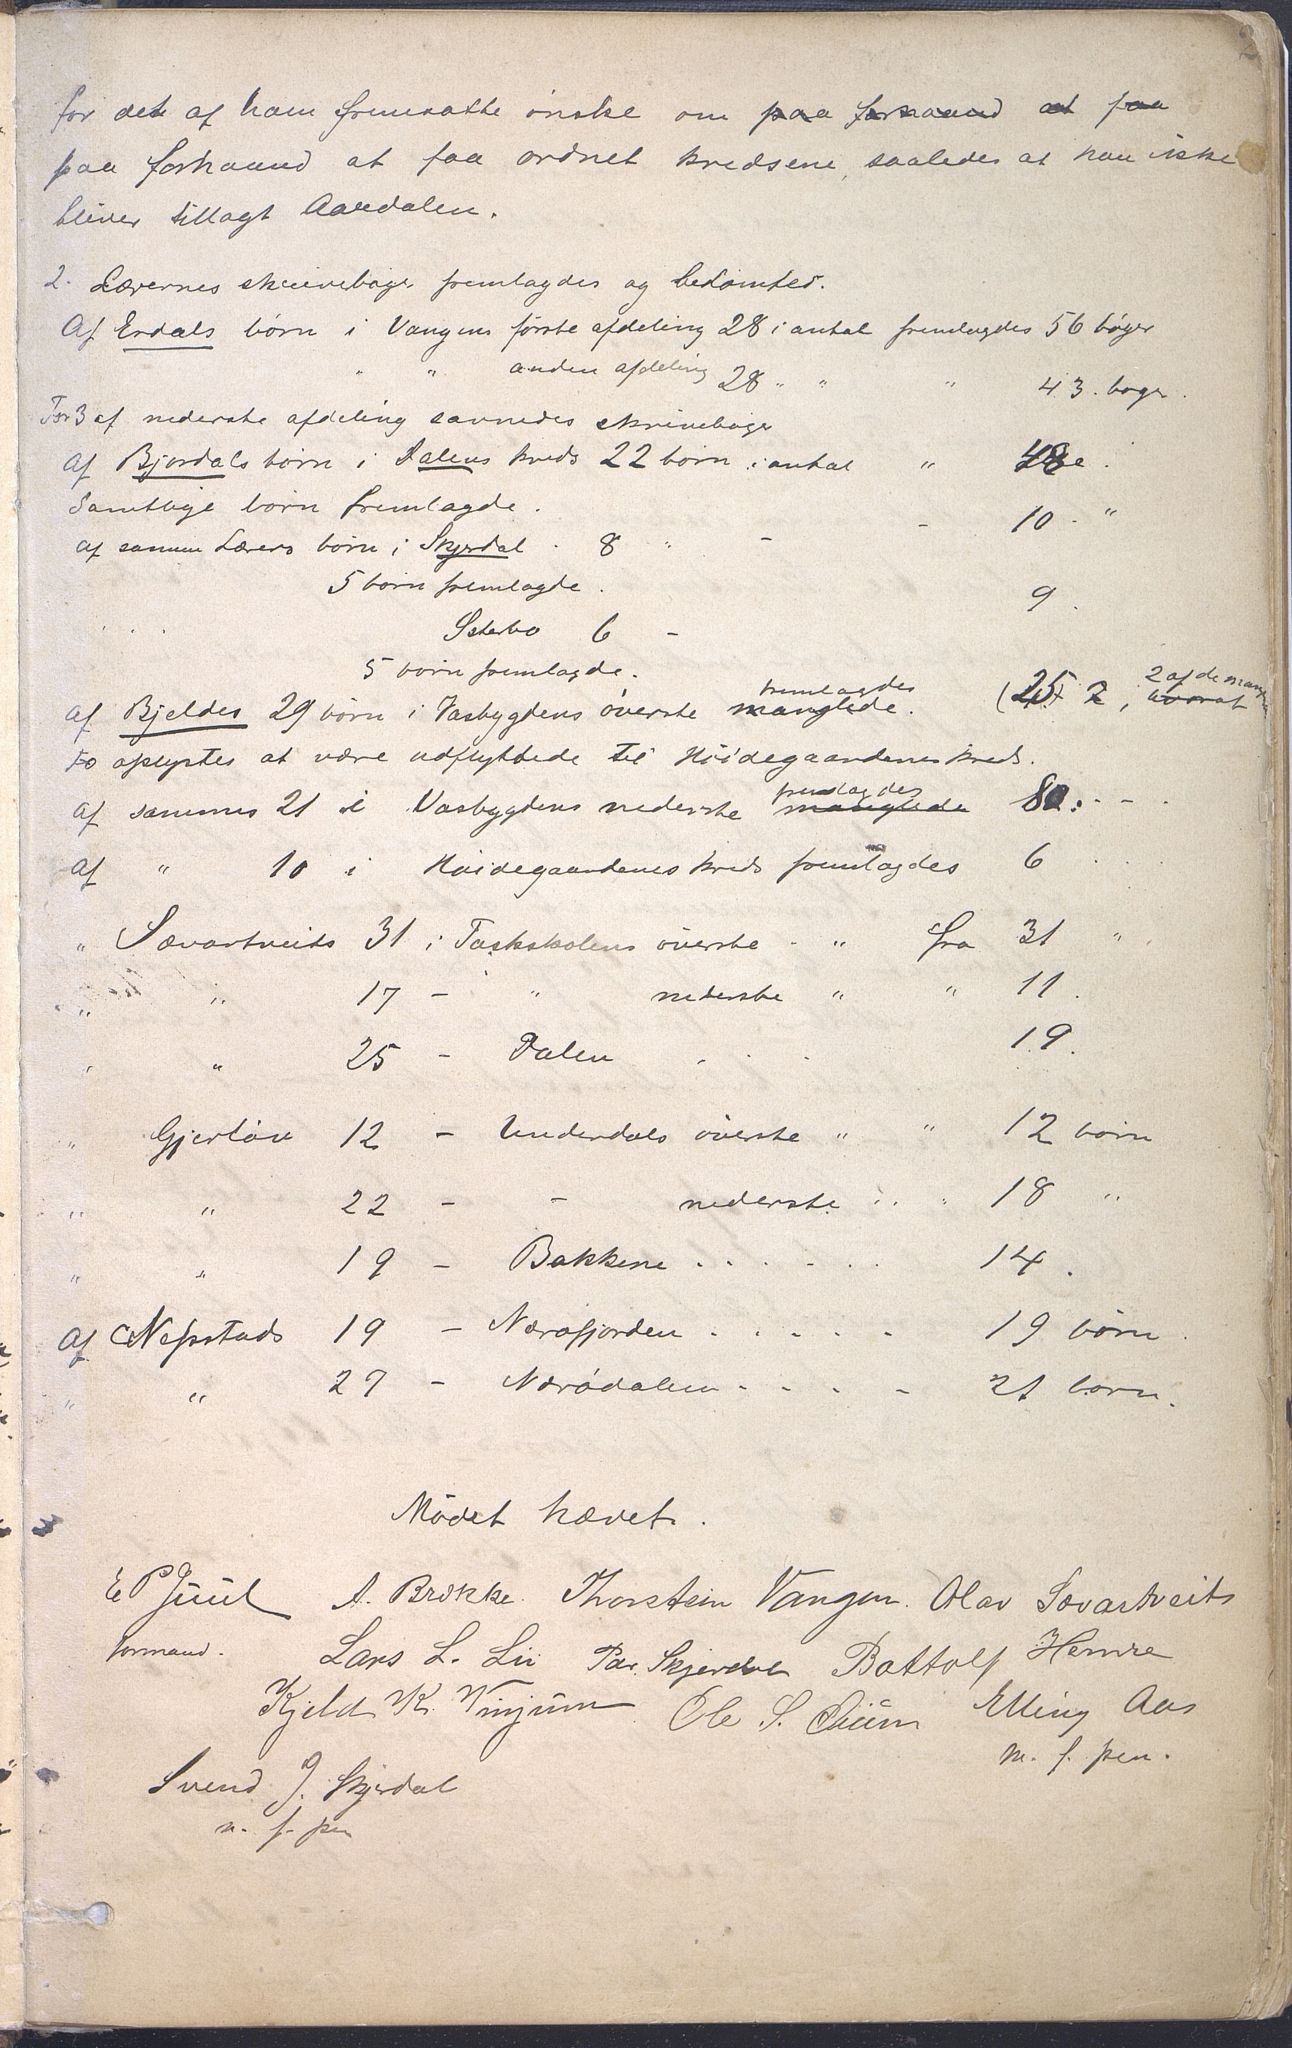 2
for det af ham fremsatte ønske om paa forhaand at faa
paa forhaand at faa ordnet kredsene, saaledes at han ikke
bliver tillagt Aardalen.
2. Lærernes skrivebøger fremlagdes og bedømtes.
Af Erdals børn i Vangens første afdeling 28 i antal fremlagdes 56 bøger
" " anden afdeling 28 " " " 43. bøger.
For 3 af nederste afdeling savnedes skrivebøger
Af Bjordals børn i Dalens kreds 22 børn i antal " 48
Samtlige børn fremlagde.
af samme Lærers børn i Skjerdal - 8 " - - 10 - "
5 børn fremlagde.
Seterbo 6 - 9.
5 børn fremlagde.
af Bjeldes 29 børn i Vasbygdens øverste manglede fremlagdes. (25) 2, hvoraf 2 af de
to oplystes at være udflyttede til Høidegaardenes kreds.
af sammes 21 i Vasbygdens nederste manglede fremlagdes 80. - -
af " 10 i Høidegaardenes kreds fremlagdes 6
" Sævartveits 31 i Taskskolens øverste - " fra 31 "
" " 17 - " nederste " " 11.
" " 25 - Dalen . . . 19.
" Gjerløv 12 - Underdals øverste " " 12 børn
" " 22 - - nederste " " 18 "
" " 19 - Bakkene . . . . . . 14.
Af Nepstads 19 - Nærøfjorden . . . . . 19 børn.
" " 27 - Nærødalen - - - - 21 børn.
Mødet hævet.
E P Juul A. Brekke. Thorstein Vangen. Olav Sævartveits
formand. Lars L. Lii Per Skjerdal Bottolf Hemre
Kjeld K. Vinjum Ole S. Elling Aas
m. f. pen.
Svend J. Skjerdal
m. f. pen